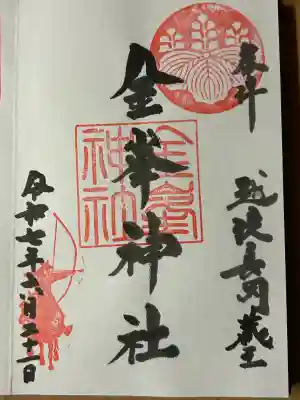 奉拝
越後長岡蔵王
金峯神社
金峯神社
令和七年六月二十一日